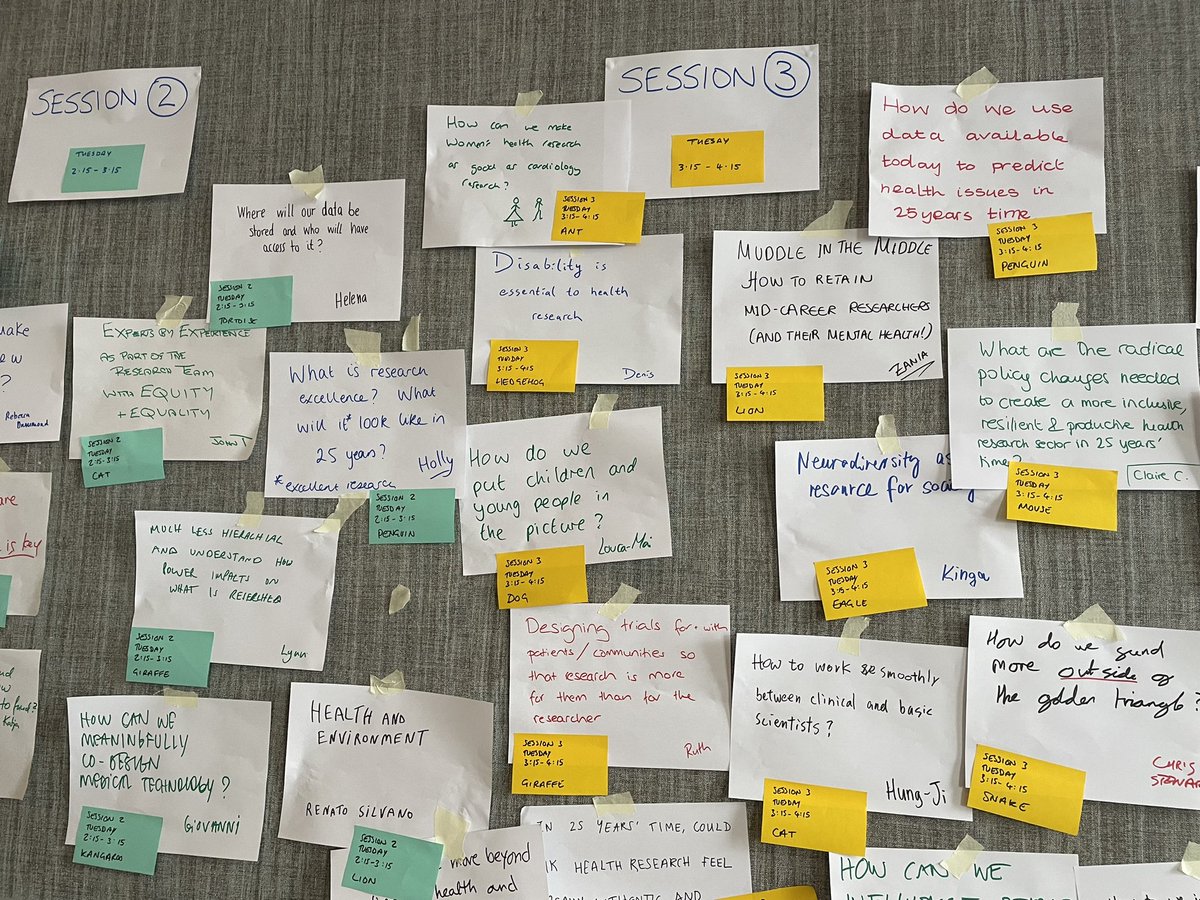 SESSION 2
TUESDAY
2:15 - 3:15
Where will our data be
stored and who will have
access to it?
Helena
SESSION 2
TUESDAY
2:15 - 3:15
TORTOISE
EXPERTS BY EXPERIENCE
AS PART OF THE
RESEARCH TEAM
WITH EQUITY
+ EQUALITY
JOHN T
SESSION 2
TUESDAY
2:15-3:15
CAT
What is research
excellence? What
will it* look like in
25 years?
Holly
*excellent research
SESSION 2
TUESDAY
2:15-3:15
PENGUIN
MUCH LESS HIERACHIAL
AND UNDERSTAND HOW
POWER IMPACTS ON
WHAT IS RESEARCHED
Lynn
SESSION 2
TUESDAY
2:15-3:15
GIRAFFE
HOW CAN WE
MEANINGFULLY
CO-DESIGN
MEDICAL TECHNOLOGY?
GIOVANNI
SESSION 2
TUESDAY
2:15-3:15
KANGAROO
HEALTH AND
ENVIRONMENT
RENATO SILVANO
SESSION 2
TUESDAY
2:15-3:15
LION
move beyond
health and
make
?
Rebecca
is key
SESSION 3
TUESAY
3:15 - 4:15
How can we make
Women's health research
as good as cardiology
research?
SESSION 3
TUESDAY
3:15-4:15
ANT
Disability is
essential to health
research
Denis
SESSION 3
TUESDAY
3:15-4:15
HEDGEHOG
How do we
put children and
young people in
the picture?
Louca-Mai
SESSION 3
TUESDAY
3:15-4:15
DOG
Designing trials for + with
patients/communities so
that research is more
for them than for the
researcher
Ruth
SESSION 3
TUESDAY
3:15-4:15
GIRAFFE
IN 25 YEARS' TIME, COULD
HEALTH RESEARCH FEEL
AUTHENTIC AND
How do we use
data available
today to predict
health issues in
25 years time
SESSION 3
TUESDAY
3:15-4:15
PENGUIN
MUDDLE IN THE MIDDLE
HOW TO RETAIN
MID-CAREER RESEARCHERS
(AND THEIR MENTAL HEALTH!)
ZANIA
SESSION 3
TUESDAY
3:15-4:15
LION
What are the radical
policy changes needed
to create a more inclusive,
resilient & productive health
research sector in 25 years'
time?
Claire C.
SESSION 3
TUESDAY
3:15-4:15
MOUSE
Neurodiversity as
resource for
Kinga
SESSION 3
TUESDAY
3:15-4:15
EAGLE
How to work smoothly
between clinical and basic
scientists?
Hung-Ji
SESSION 3
TUESDAY
3:15-4:15
CAT
How do we
more outside of
the golden triangle?
CHRIS
SESSION 3
TUESDAY
3:15-4:15
SNAKE
HOW CAN WE